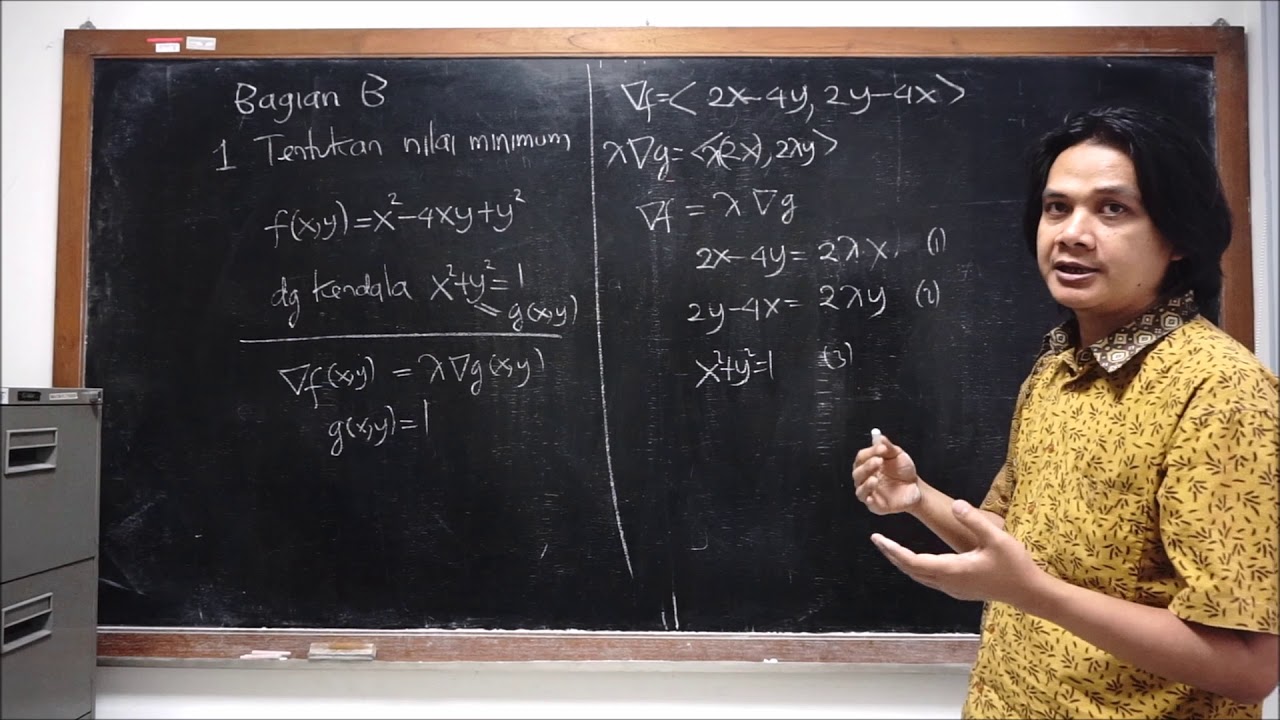 Bagian B
1 Tentukan nilai minimum
f(x,y)=x²-4xy+y²
dg kendala x²+y²=1
g(x,y)
∇f(x,y) = λ∇g(x,y)
g(x,y)=1
∇f=<2x-4y, 2y-4x>
λ∇g=<λ(2x), 2λy>
∇f = λ∇g
2x-4y = 2λx. (1)
2y-4x = 2λy (2)
x²+y²=1 (3)